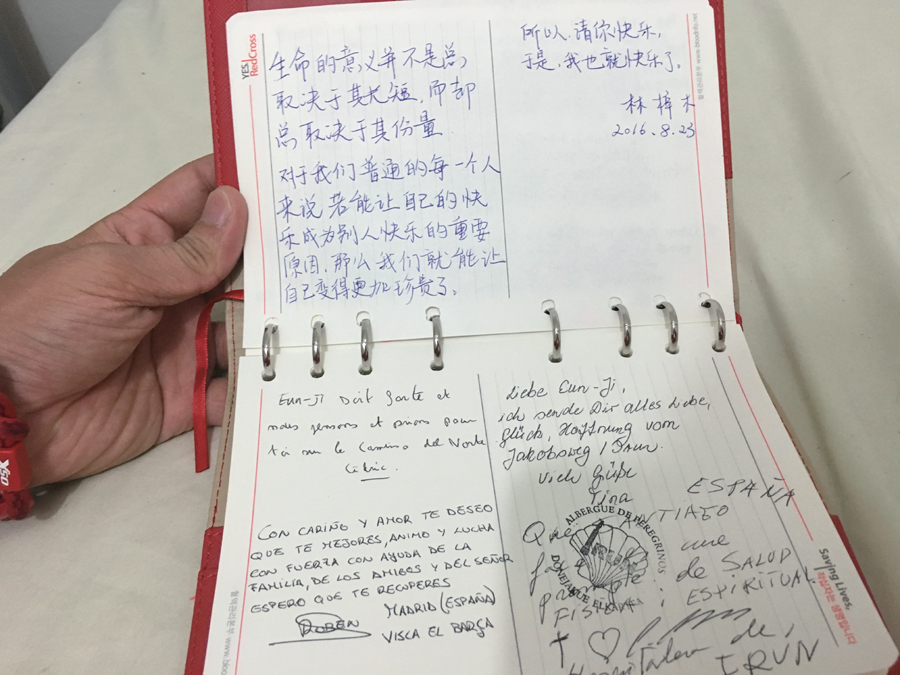 YES
RedCross
生命的意义并不是总
取决于其长短，而却
总取决于其份量
对于我们普通的每一个人
来说 若能让自己的快
乐成为别人快乐的重要
原因，那么我们就能让
自己变得更加珍贵了。
所以，请你快乐，
于是，我也就快乐了。
林梓木
2016.8.23
Eun-Ji soit forte et
nous pensons et prions pour
toi sur le Camino del Norte
CON CARIÑO Y AMOR TE DESEO
QUE TE MEJORES, ANIMO Y LUCHA
CON FUERZA CON AYUDA DE LA
FAMILIA, DE LOS AMIGOS Y DEL SEÑOR
ESPERO QUE TE RECUPERES
RUBEN
MADRID (ESPAÑA)
VISCA EL BARÇA
Liebe Eun-Ji,
ich sende Dir alles Liebe,
Glück, Hoffnung vom
Jakobsweg / Irun.
Viele Grüße
Tina
ESPAÑA
Que SANTIAGO
une
de SALUD
FISICA i ESPIRITUAL
Hospitalero de,
IRUN
ALBERGUE DE PEREGRINOS
Saving Lives,
헌혈자는 생명입니다